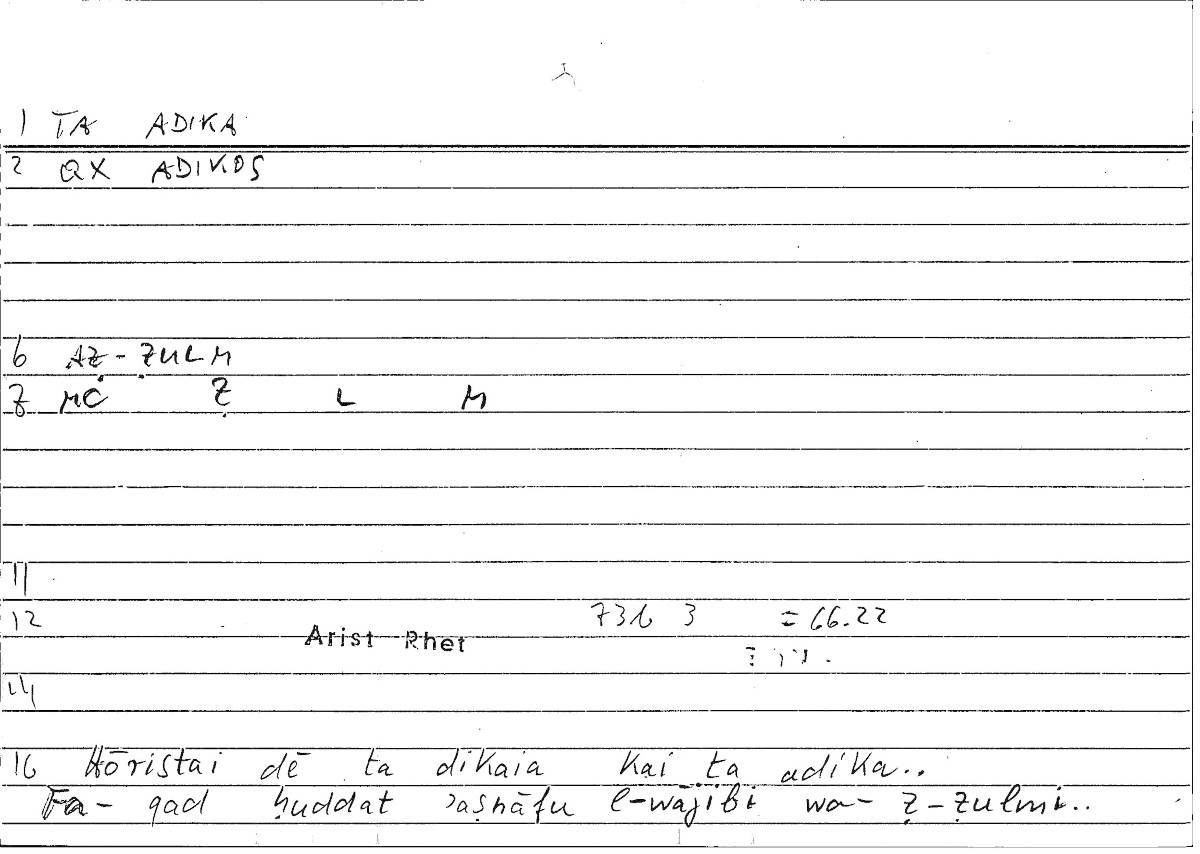 1 TA ADIKA
2 QX ADIKOS
6 AẒ-ẒULM
7 MĊ Ẓ L M
11
12 73b 3 = 66.22
Arist Rhet
14
16 Hōristai dē ta dikaia kai ta adika..
Fa- qad ḥuddat ʾaṣnāfu l-wājibi wa- ẓ-ẓulmi..